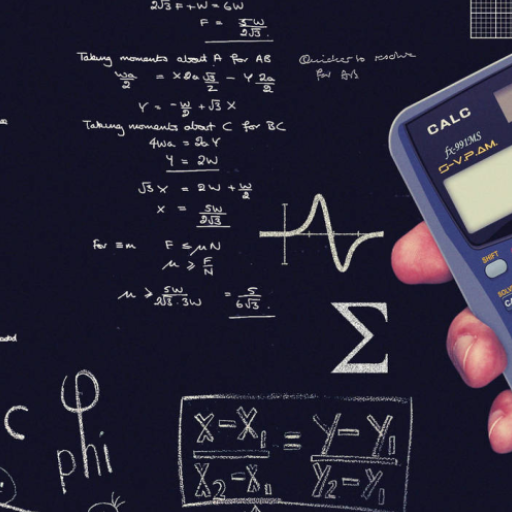 2√3 F + W = 6W
F = 5W/2√3
Taking moments about A for AB
Quicker to resolve
for AB
Wa/2 = X2a √3/2 - Y 2a/2
Y = -W/2 + √3 X
Taking moments about C for BC
4Wa = 2a Y
Y = 2W
√3 X = 2W + W/2
X = 5W/2√3
for ≡m F ≤ μN
μ ≥ F/N
μ ≥ 5W/2√3 · 3W = 5/6√3
Σ
C
φ
phi
X-X₁/X₂-X₁ = Y-Y₁/Y₂-Y₁
CALC
fx-991MS
SHIFT